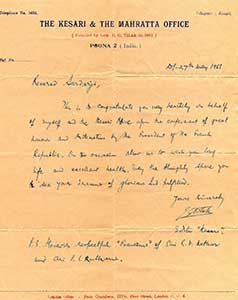 Telephone No.
Telegrams : Kesari.
THE KESARI & THE MAHRATTA OFFICE
[ Founded by Lok. B. G. TILAK in 1881 ]
POONA 2 ( India ).
Ref. No.
27th May 195
Revered Sardarji,
This is to congratulate you very heartily on behalf
of myself and the Kesari Office upon the conferment of great
honour and distinction by the President of the French
Republic. On this occasion allow us to wish you long
life and excellent health. May the Almighty spare you
to see your dreams of glorious Ind fulfilled.
Yours Sincerely
Editor "Kesari"
P.S. respectful "Pranams" of Shri
and Shri
London Office :
London,